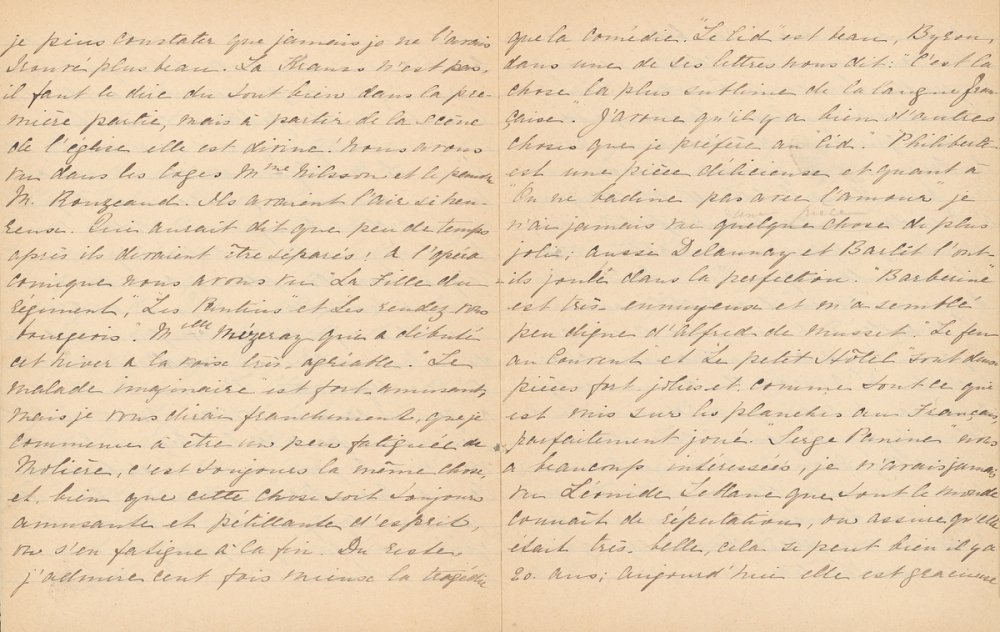 je puis constater que jamais je ne l'avais
trouvé plus beau. La Krauss n'est pas,
il faut le dire du tout bien dans la pre-
mière partie, mais à partir de la scène
de l'église elle est divine. Nous avons
vu dans les loges Mme Nilsson et le pauvre
M. Rouzeaud. Ils avaient l'air si heu-
reux. Qui aurait dit que peu de temps
après ils devaient être séparés; à l'opéra
comique nous avons vu "La Fille du
régiment", "Les Pantins" et "Les rendez-vous
bourgeois". Melle Mézeray qui a débuté
cet hiver a la voix très agréable. "Le
malade imaginaire" est fort amusant,
mais je vous dirai franchement, que je
commence à être un peu fatiguée de
Molière, c'est toujours la même chose,
et, bien que cette chose soit toujours
amusante et pétillante d'esprit,
on s'en fatigue à la fin. Du reste
j'admire cent fois mieux la tragédie
que la comédie. "Le Cid" est beau, Byron,
dans une de ses lettres nous dit: "C'est la
chose la plus sublime de la langue fran-
çaise". J'avoue qu'il y a bien d'autres
choses que je préfère au "Cid". "Philiberte"
est une pièce délicieuse et quant à
"On ne badine pas avec l'amour" je
n'ai jamais vu quelque chose de plus
joli; aussi Delaunay et Bartet l'ont-
ils joulé dans la perfection. "Barberine"
est très ennuyeuse et m'a semblé
peu digne d'Alfred de Musset. "Le feu
au Couvent" et "Le petit Hôtel" sont deux
pièces fort jolies et comme tout ce qui
est mis sur les planches au Français,
parfaitement joué. "Serge Panine" nous
a beaucoup intéressées, je n'avais jamais
vu Léonide Leblanc que tout le monde
connaît de réputation, on assure qu'elle
était très belle, cela se peut bien il y a
20 ans; aujourd'hui elle est gracieuse